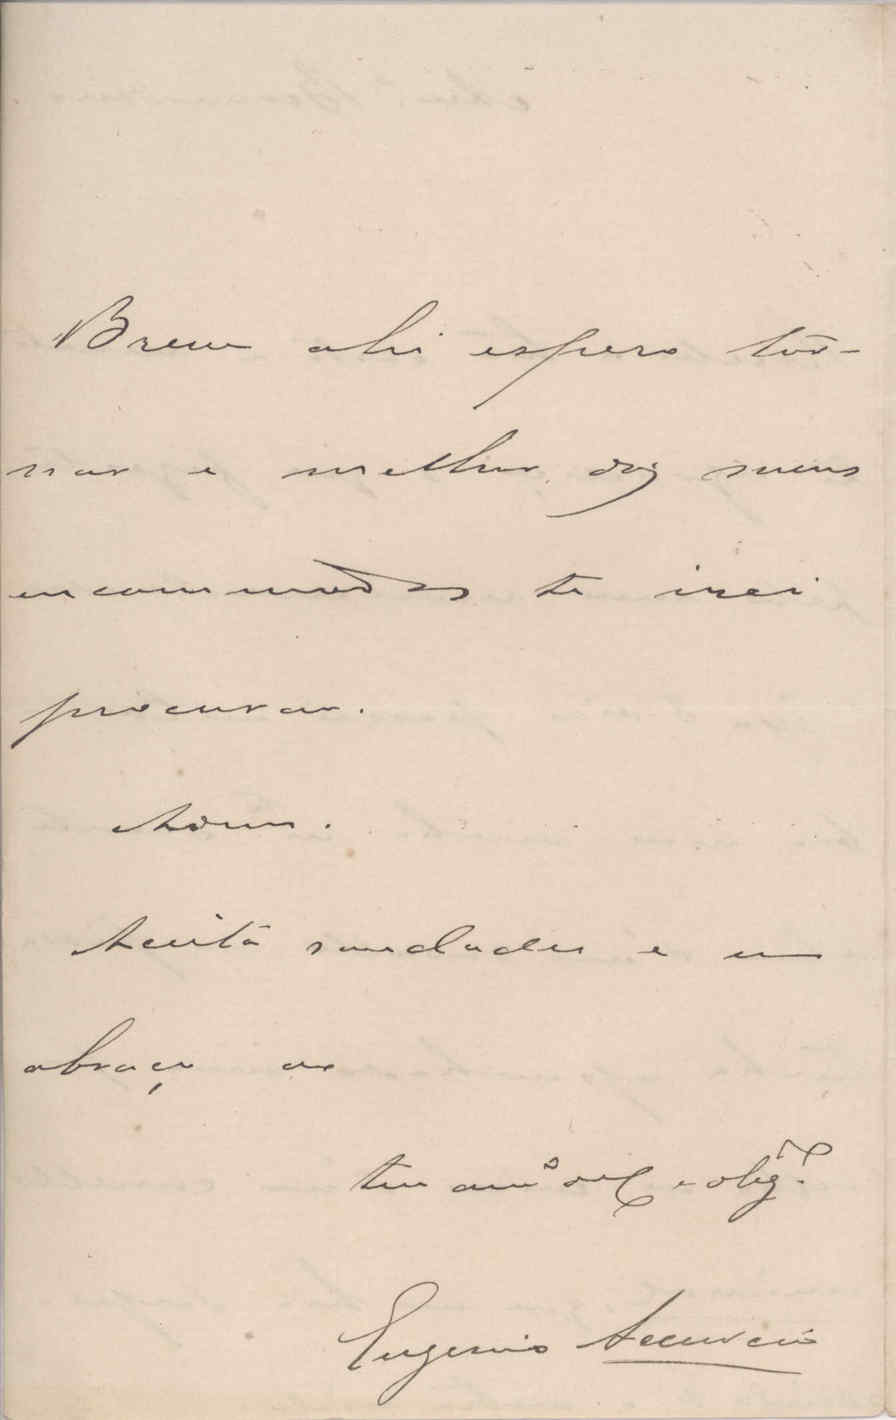 Breve ahi espero tor-
nar e melhor dos meus
encommodos te irei
procurar.
Adeus.
Aceita saudades e um
abraço ao
teu amº e obgº.
Eugenio